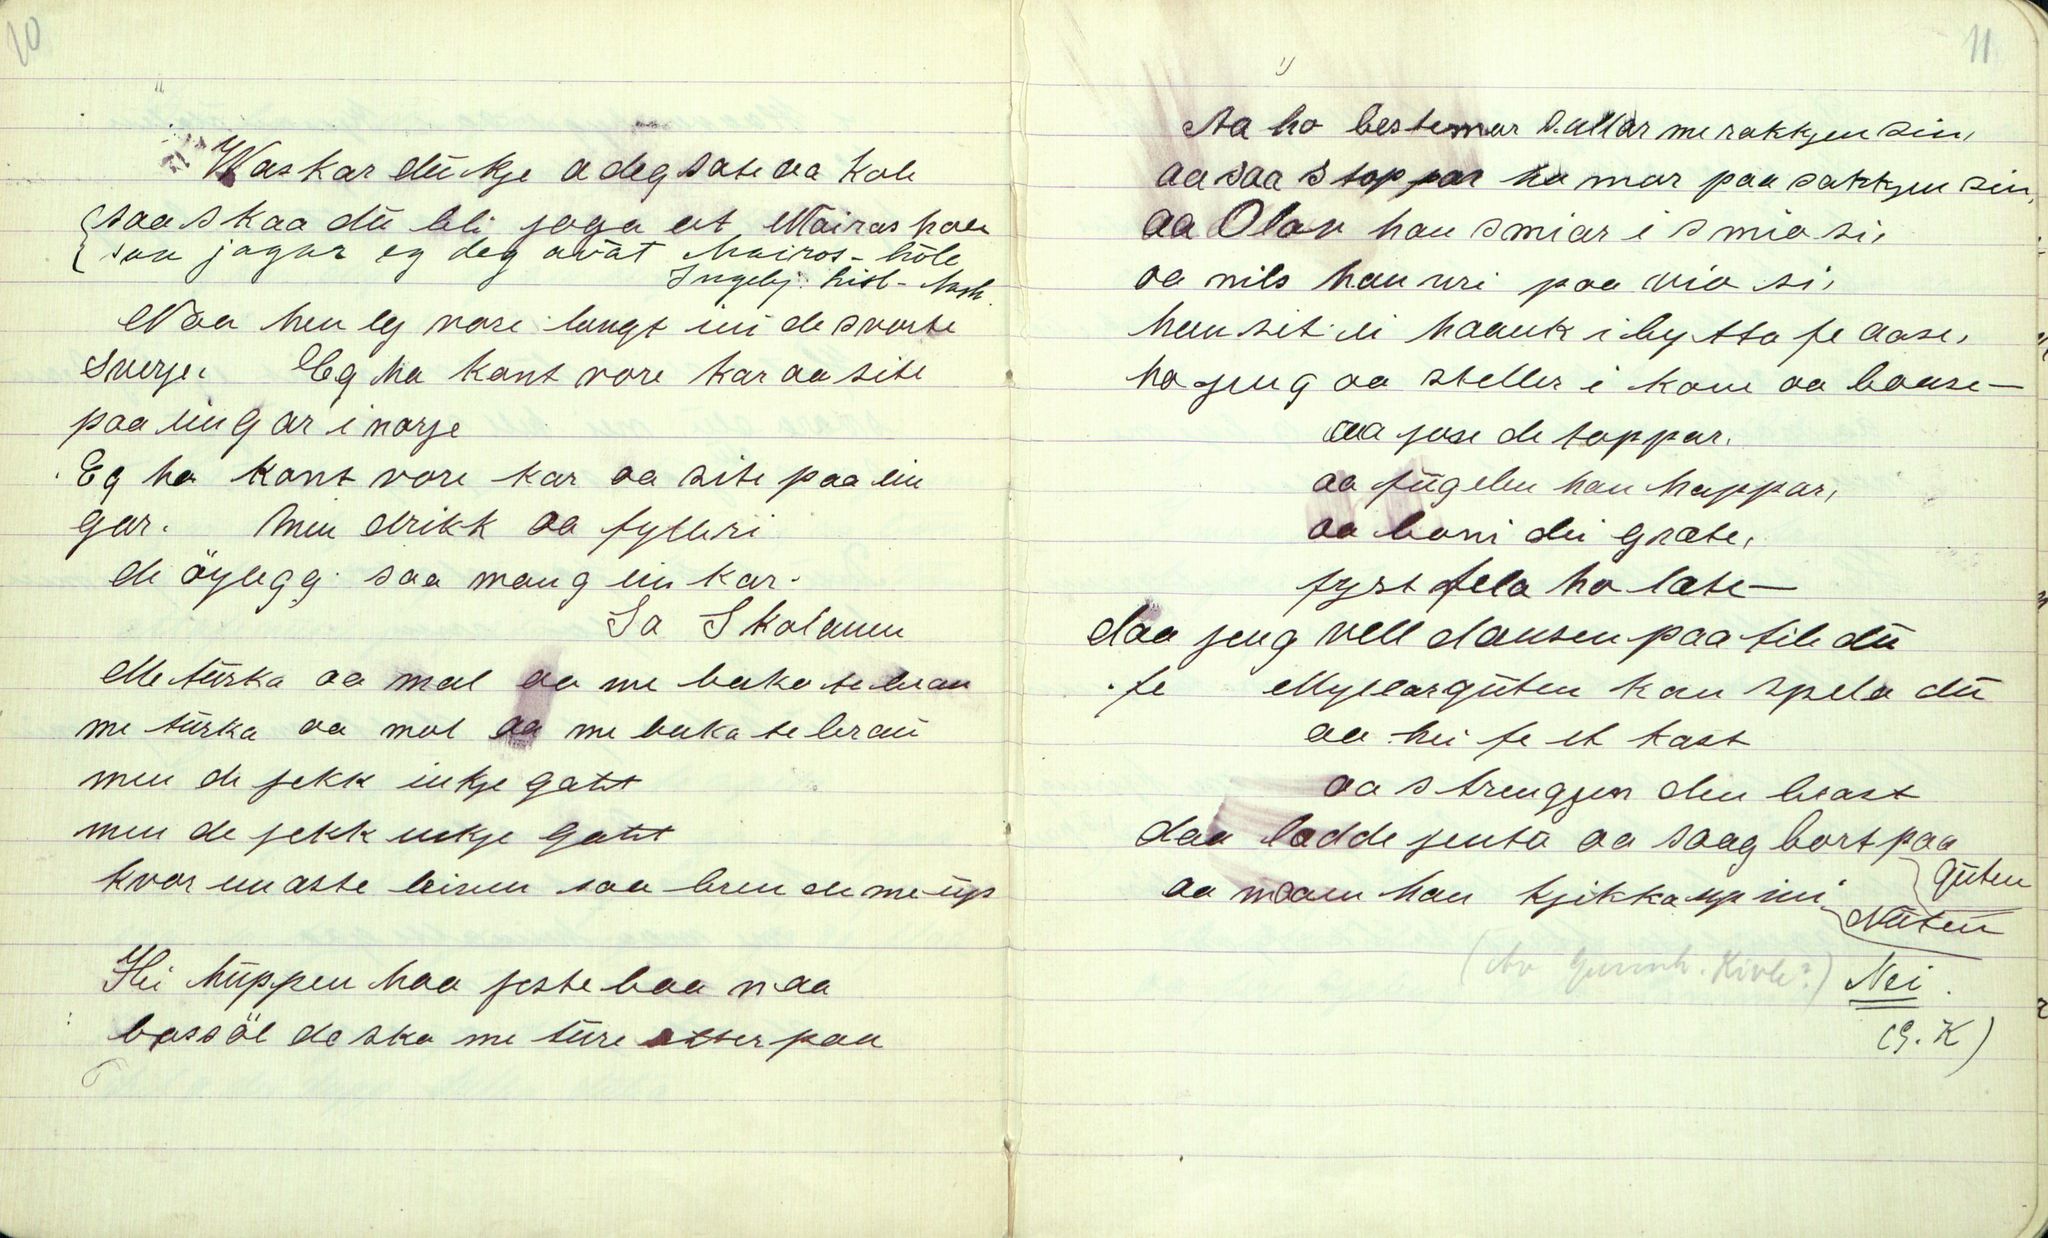 10
"
Waskar dü kje a deg sate aa kole
saa skaa dü bli joga ut Nairas hole
saa jagar eg deg avat Mairos-hôle
Ingebj. Lisl-Aash.
Naa hen eg vore langt in i de svorte
Sverje. Eg ha kont vore kar aa site
paa ein gar i norje
Eg ha kont vore kar aa site paa ein
gar. Men drikk aa fylleri
de öylegg saa mang ein kar.
Sa Skolamen
Me türka aa mol aa me baka te brau
me türka aa mol aa me baka te braü
men de jekk inkje gatt
men de jekk inkje gatt
kvor einaste leiven saa bren de me üp
Hei hüppen haa jeste baa naa
bassöl de ska me türe etter paa
11
"
Aa ho bestemor sullar me rakkjen sin,
aa saa stoppar ho mor paa sakkjen sin,
aa Olav han smiar i smio si,
aa nils han uri paa vio si,
han sit ei haank i bytta fe aase,
ho jeng aa steller i kove aa baase—
aa jose de toppar.
aa fügelen han happar,
aa boni dei græte,
fyst fela ho læte—
daa jeng vell dansen paa tile dü
fe Myllargüten kan spela dü
aa hei fe et kast
aa strengjen den brast
daa ladde jenta aa saag bort paa
güten
aa maanen han kjikka up ivi
Nüten
(Av Gunnh. Kivle?) Nei.
(G. K)